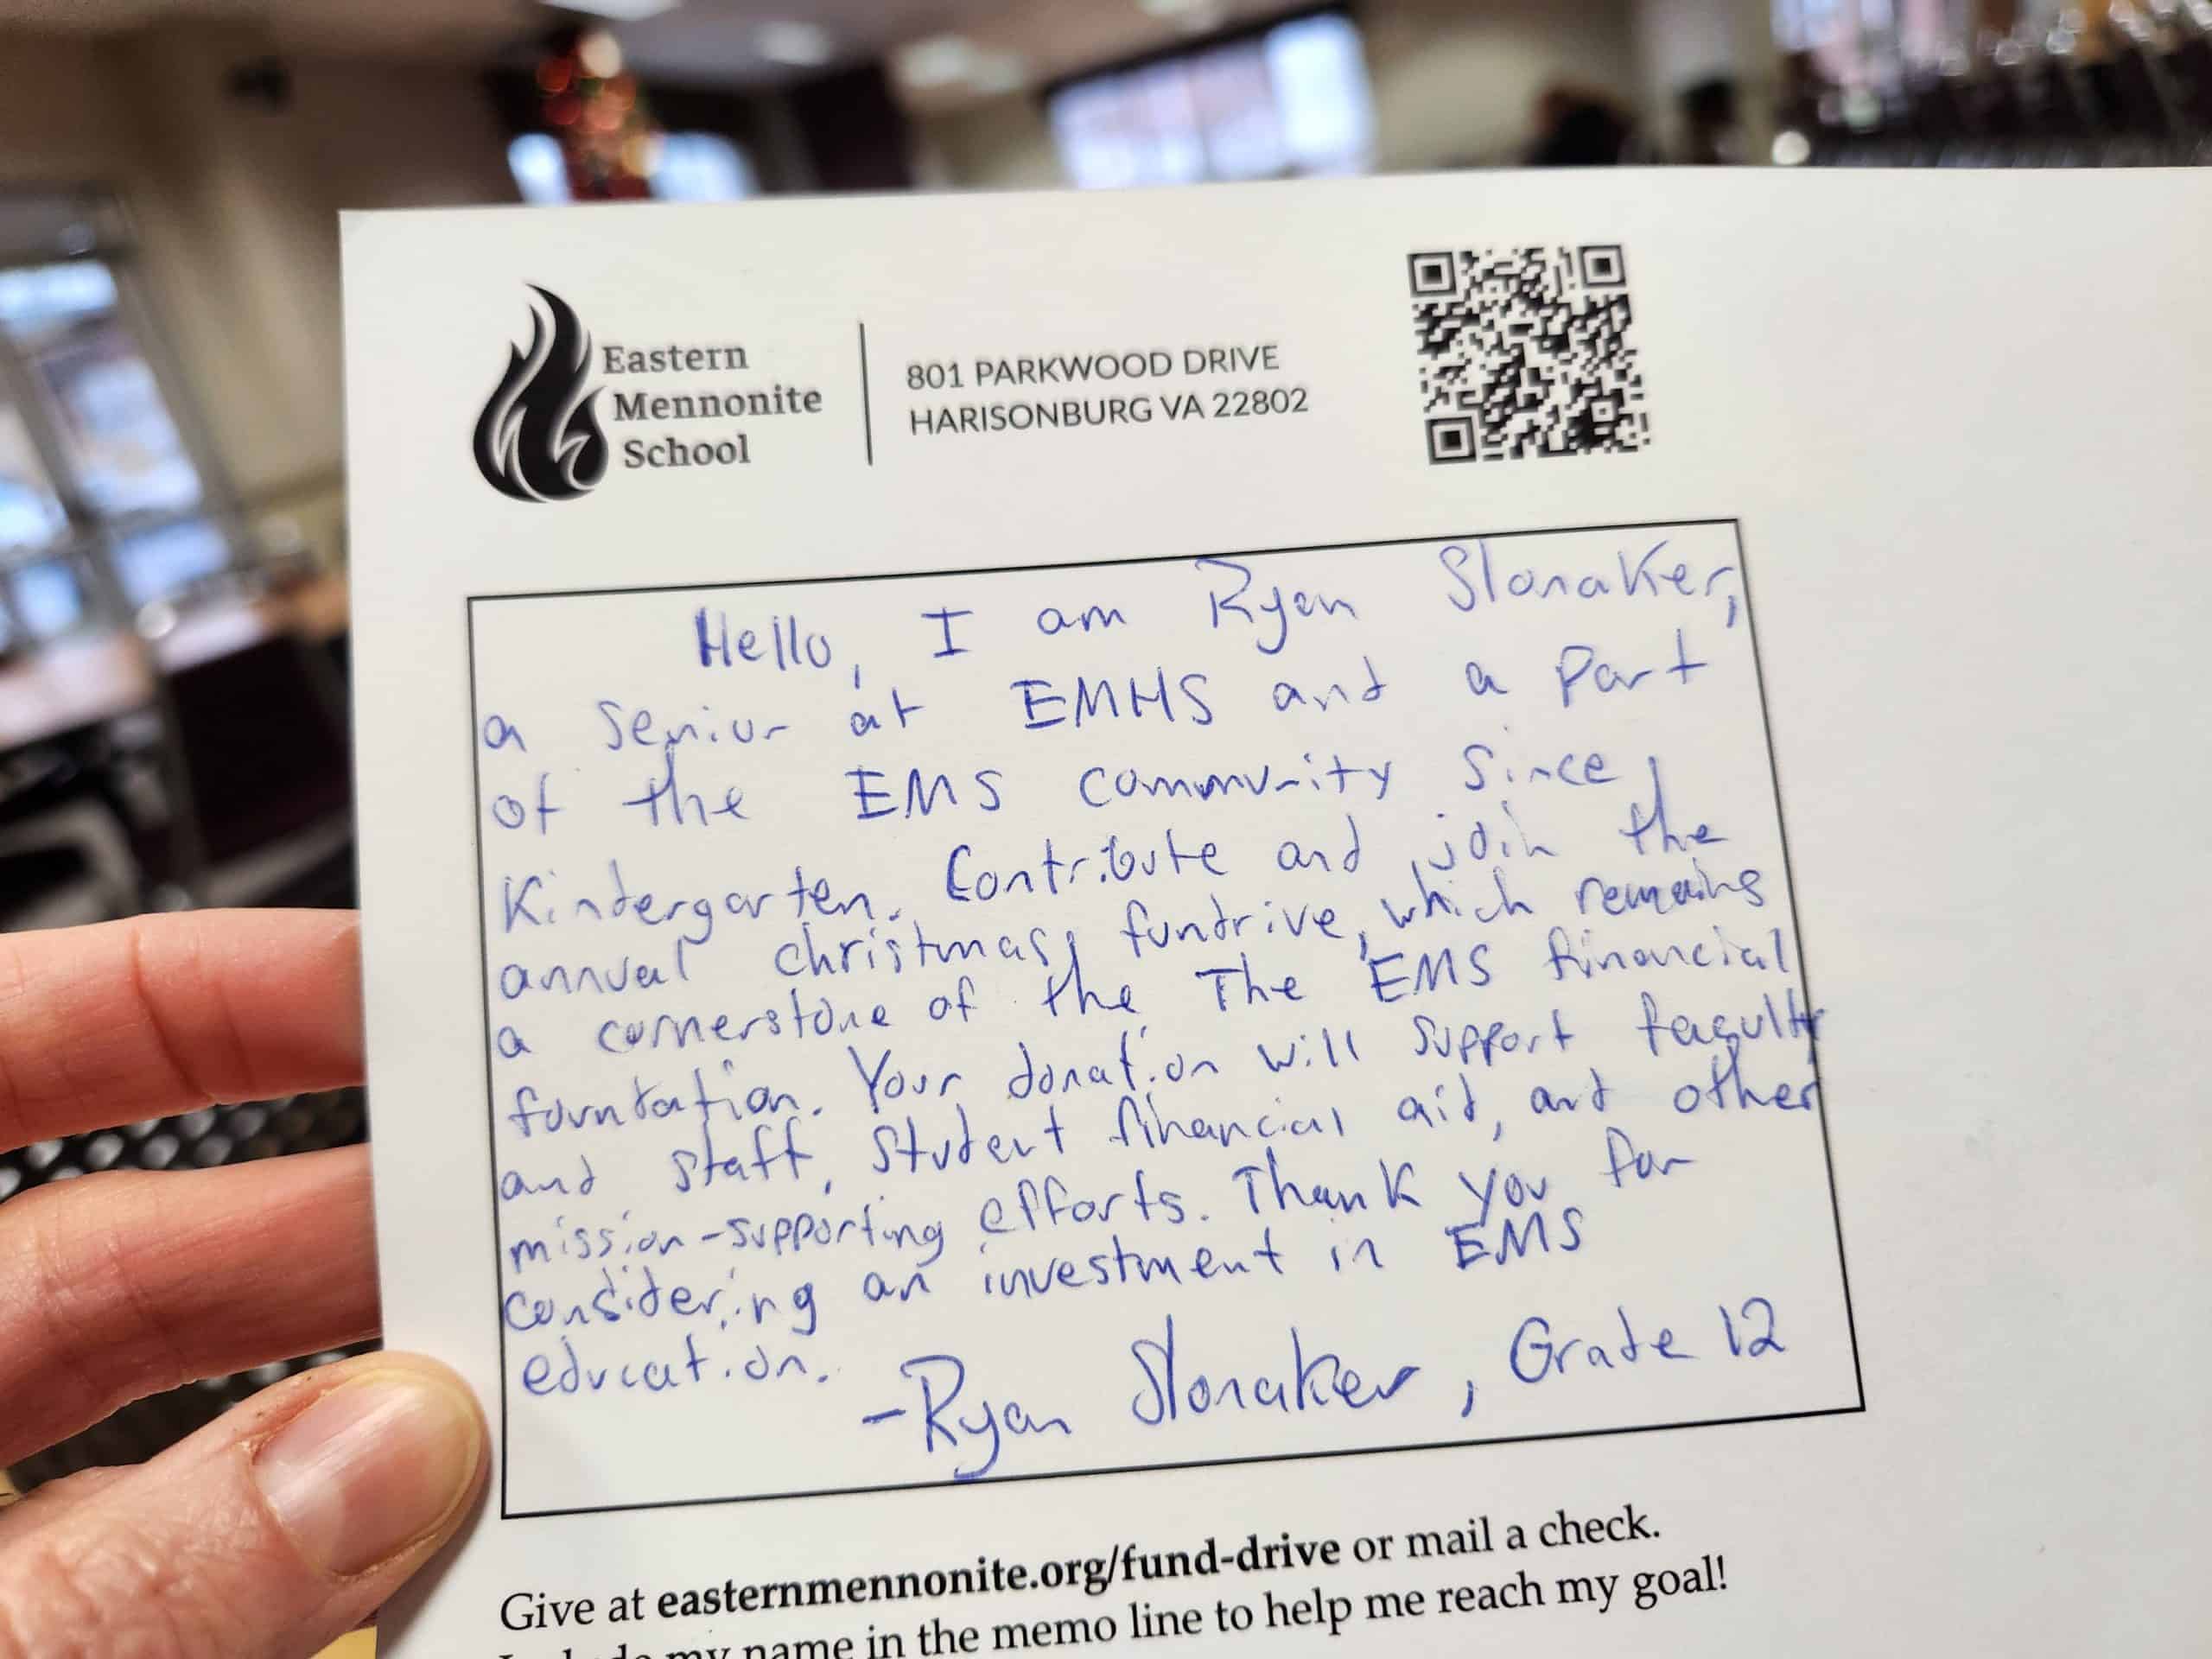 Eastern
Mennonite
School
801 PARKWOOD DRIVE
HARISONBURG VA 22802
Hello, I am Ryan Slonaker,
a senior at EMHS and a part
of the EMS community since
Kindergarten. Contribute and join the
annual christmas fundrive, which remains
a cornerstone of the The EMS financial
foundation. Your donation will support faculty
and staff, student financial aid, and other
mission-supporting efforts. Thank you for
considering an investment in EMS
education.
-Ryan Slonaker, Grade 12
Give at easternmennonite.org/fund-drive or mail a check.
my name in the memo line to help me reach my goal!